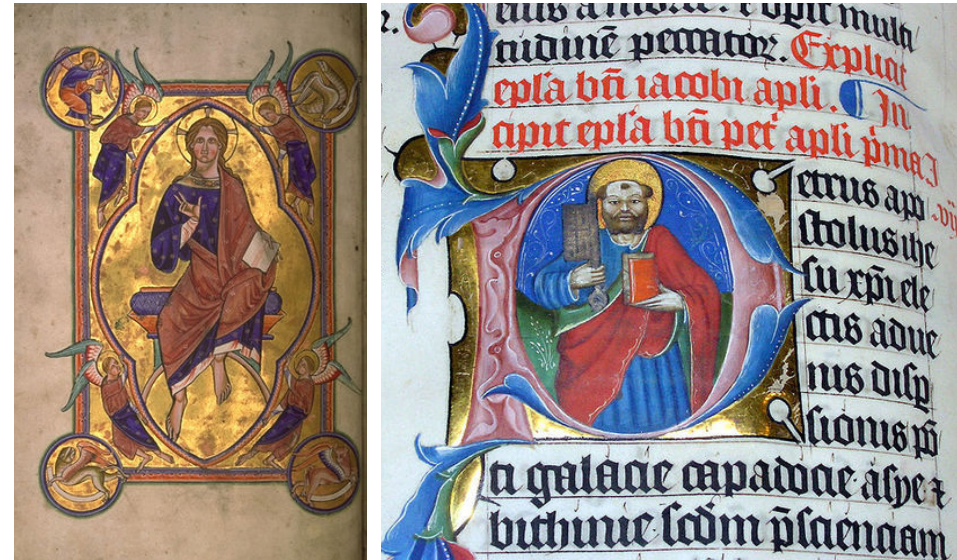 eius a morte. ⁊ opit multi
tudinē peccator̄. Explicit
epl̄a bt̄i iacobi apl̄i. In
cipit epl̄a bt̄i pet̾ apl̄i p̾ma J
etrus apo
stolus ihe
su xp̄i ele
ctis adue
nis disp
sionis pō
ti galacie capadocie ashe ⁊
bithinie scd̄m p̄scienciam